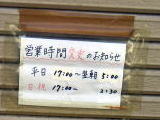 営業時間変更のお知らせ
平日 17:00~翌朝 5:00
日・祝 17:00~ 2:30